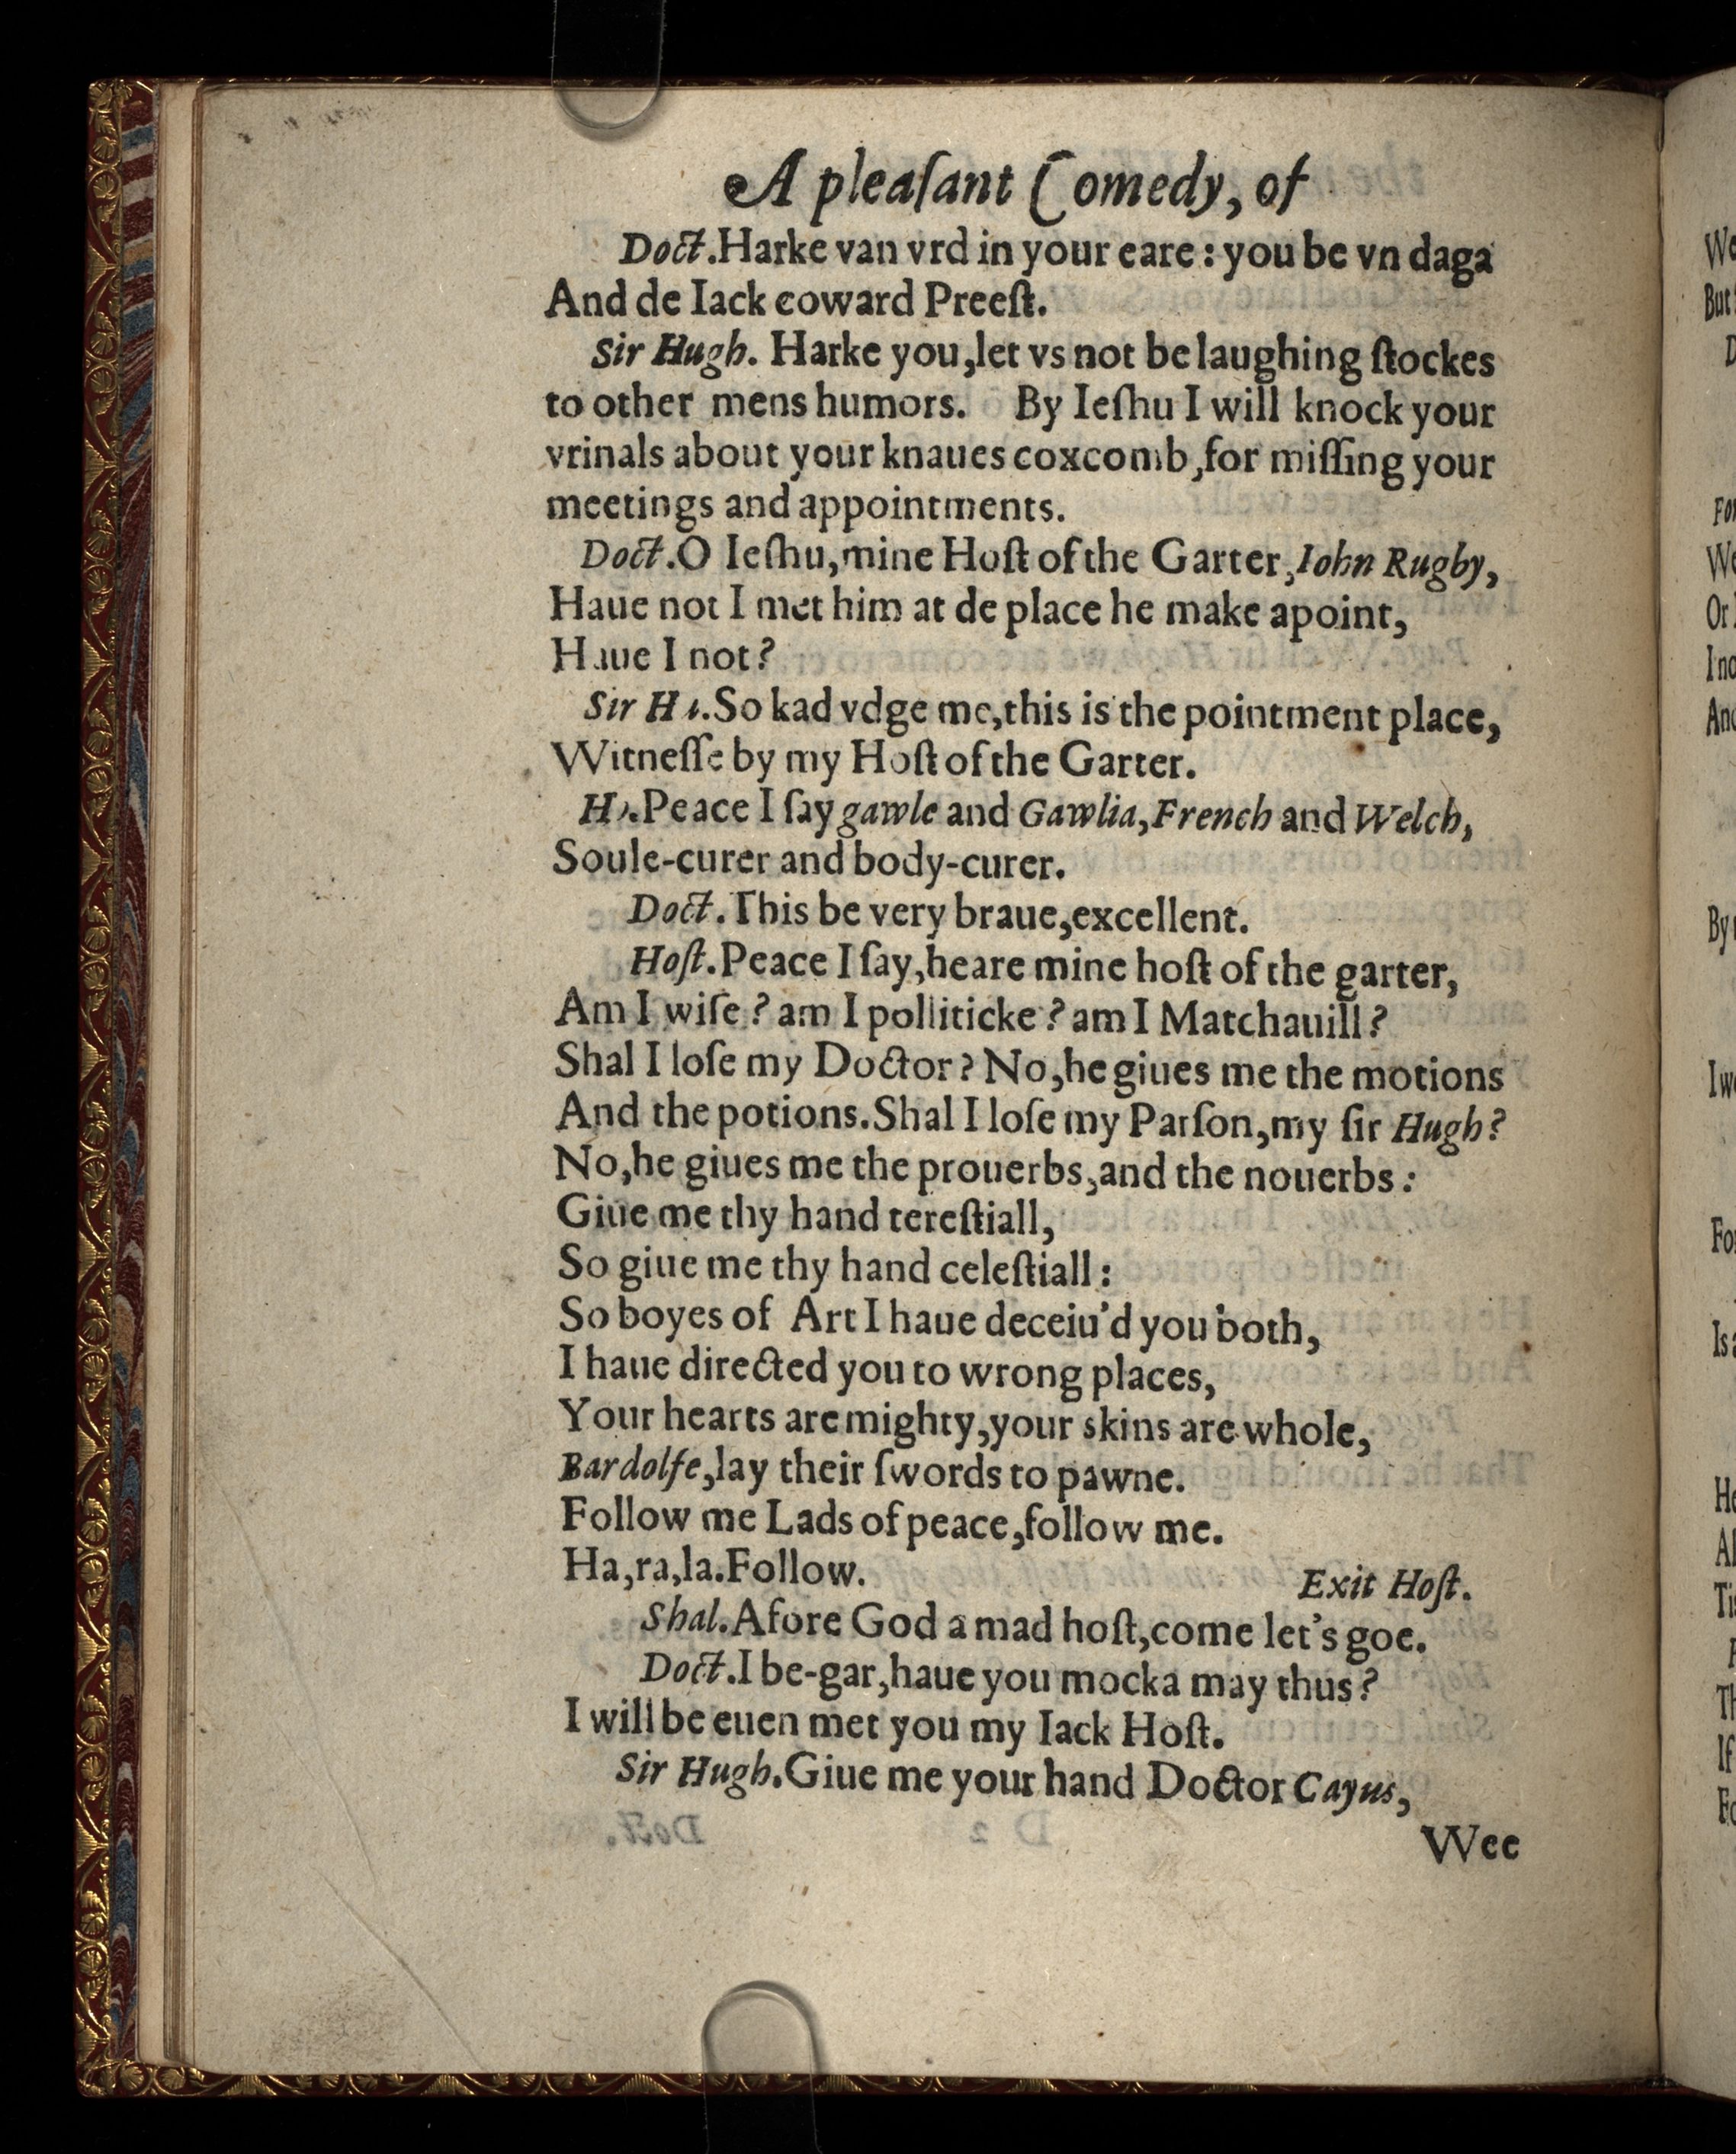 A pleaſant Comedy, of
Doct. Harke van vrd in your eare: you be vn daga
And de Iack coward Preeſt.
Sir Hugh. Harke you, let vs not be laughing ſtockes
to other mens humors. By Ieſhu I will knock your
vrinals about your knaues coxcomb, for miſſing your
meetings and appointments.
Doct. O Ieſhu, mine Hoſt of the Garter, Iohn Rugby,
Haue not I met him at de place he make apoint,
Haue I not?
Sir Hu. So kad vdge me, this is the pointment place,
Witneſſe by my Hoſt of the Garter.
Ho. Peace I ſay gawle and Gawlia, French and Welch,
Soule-curer and body-curer.
Doct. This be very braue, excellent.
Hoſt. Peace I ſay, heare mine hoſt of the garter,
Am I wiſe? am I polliticke? am I Matchauill?
Shal I loſe my Doctor? No, he giues me the motions
And the potions. Shal I loſe my Parſon, my ſir Hugh?
No, he giues me the prouerbs, and the nouerbs:
Giue me thy hand tereſtiall,
So giue me thy hand celeſtiall:
So boyes of Art I haue deceiu'd you both,
I haue directed you to wrong places,
Your hearts are mighty, your skins are whole,
Bardolfe, lay their ſwords to pawne.
Follow me Lads of peace, follow me.
Ha, ra, la. Follow. Exit Hoſt.
Shal. Afore God a mad hoſt, come let's goe.
Doct. I be-gar, haue you mocka may thus?
I will be euen met you my Iack Hoſt.
Sir Hugh. Giue me your hand Doctor Cayus,
Wee